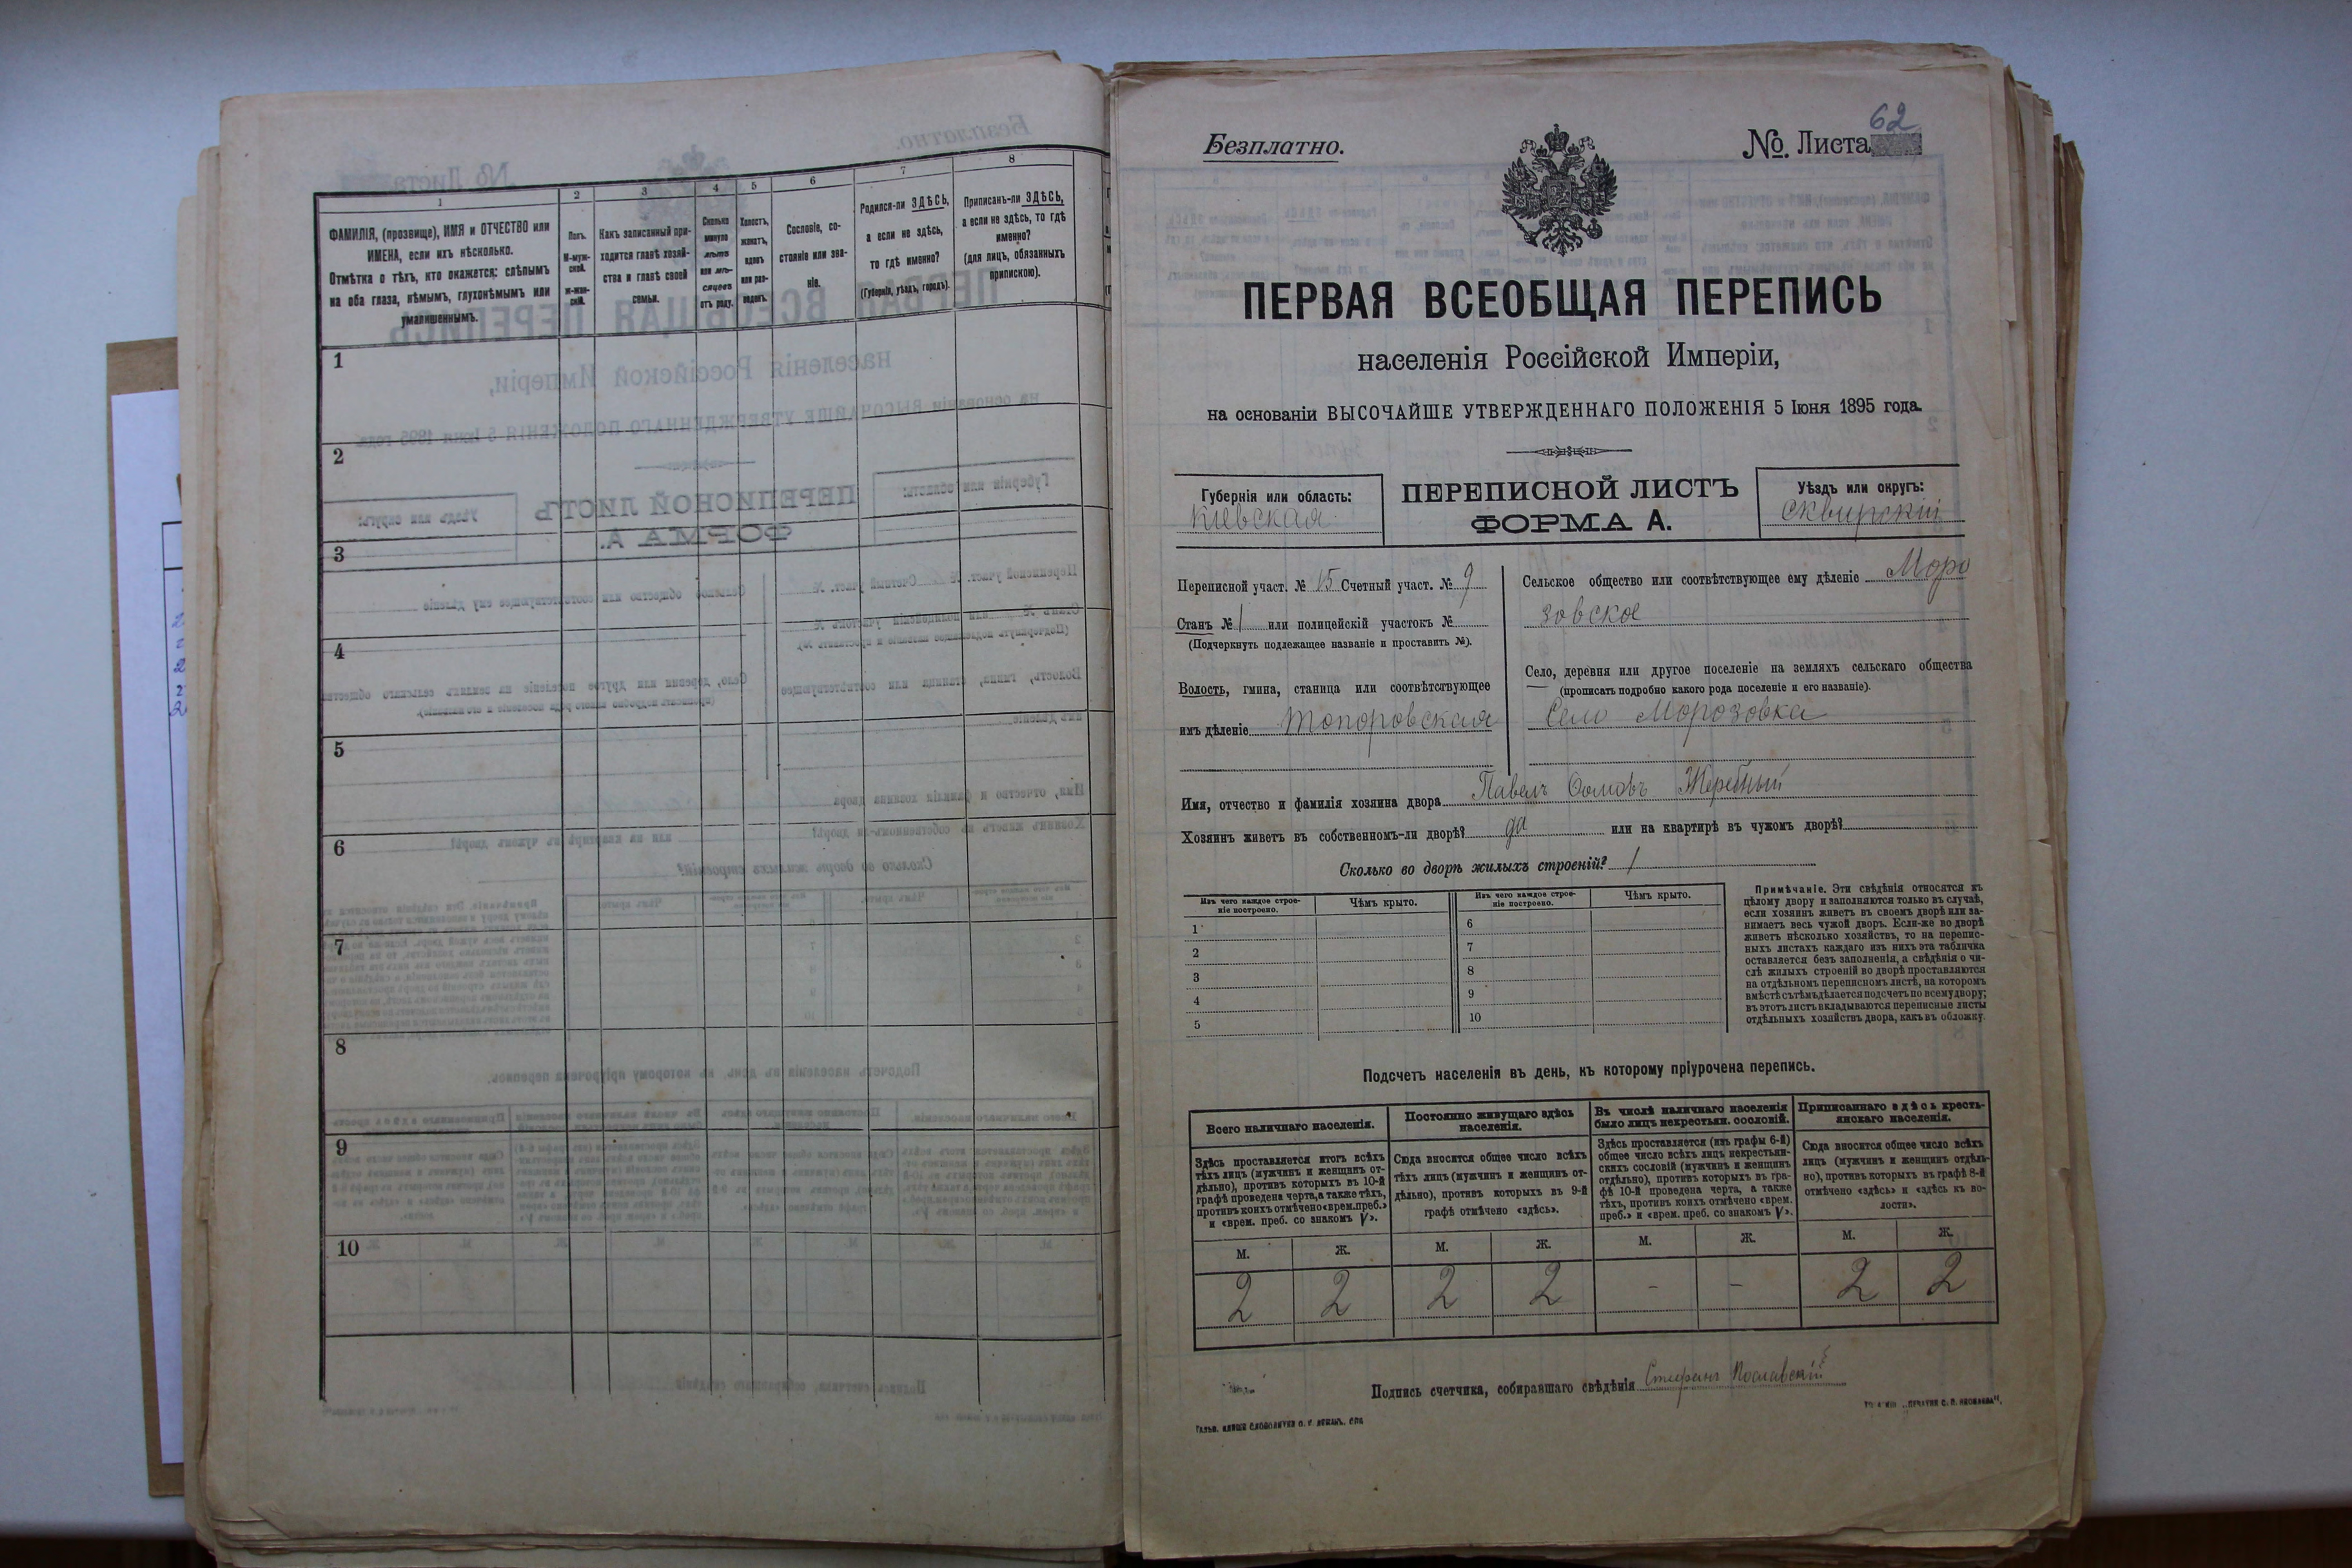 1
2
3
4
5
6
7
8
ФАМИЛІЯ, (прозвище), ИМЯ и ОТЧЕСТВО или
ИМЕНА, если ихъ нѣсколько.
Отмѣтка о тѣхъ, кто окажется: слѣпымъ
на оба глаза, нѣмымъ, глухонѣмымъ или
умалишеннымъ.
Полъ.
М-муж-
ской.
ж-жен-
скій.
Какъ записанный при-
ходится главѣ хозяй-
ства и главѣ своей
семьи.
Сколько
минуло
лѣтъ
или мѣ-
сяцевъ
отъ роду.
Холостъ,
женатъ,
вдовъ
или раз-
веденъ.
Сословіе, со-
стояніе или зва-
ніе.
Родился-ли ЗДѢСЬ,
а если не здѣсь,
то гдѣ именно?
(Губернія, уѣздъ, городъ).
Приписанъ-ли ЗДѢСЬ,
а если не здѣсь, то гдѣ
именно?
(для лицъ, обязанныхъ
припискою).
1
2
3
4
5
6
7
8
9
10
Безплатно.
№. Листа 62
ПЕРВАЯ ВСЕОБЩАЯ ПЕРЕПИСЬ
населенія Россійской Имперіи,
на основаніи ВЫСОЧАЙШЕ УТВЕРЖДЕННАГО ПОЛОЖЕНІЯ 5 Іюня 1895 года.
Губернія или область:
Кіевская
ПЕРЕПИСНОЙ ЛИСТЪ
ФОРМА А.
Уѣздъ или округъ:
Сквирскій
Переписной участ. № 15 Счетный участ. № 9
Станъ № 1 или полицейскій участокъ №
(Подчеркнуть подлежащее названіе и проставить №).
Волость, гмина, станица или соотвѣтствующее
имъ дѣленіе Топоровская
Сельское общество или соотвѣтствующее ему дѣленіе Моро
зовское
Село, деревня или другое поселеніе на земляхъ сельскаго общества
(прописать подробно какого рода поселеніе и его названіе).
Село Морозовка
Имя, отчество и фамилія хозяина двора Павелъ Жеребный
Хозяинъ живетъ въ собственномъ-ли дворѣ? да или на квартирѣ въ чужомъ дворѣ?
Сколько во дворѣ жилыхъ строеній? 1
Изъ чего каждое строе-
ніе построено.
Чѣмъ крыто.
Изъ чего каждое строе-
ніе построено.
Чѣмъ крыто.
1
2
3
4
5
6
7
8
9
10
Примѣчаніе. Эти свѣдѣнія относятся къ
цѣлому двору и заполняются только въ случаѣ,
если хозяинъ живетъ въ своемъ дворѣ или за-
нимаетъ весь чужой дворъ. Если-же во дворѣ
живетъ нѣсколько хозяйствъ, то на перепис-
ныхъ листахъ каждаго изъ нихъ эта табличка
оставляется безъ заполненія, а свѣдѣнія о чи-
слѣ жилыхъ строеній во дворѣ проставляются
на отдѣльномъ переписномъ листѣ, на которомъ
вмѣстѣ съ тѣмъ дѣлается подсчетъ по всему двору;
въ этотъ листъ вкладываются переписные листы
отдѣльныхъ хозяйствъ двора, какъ въ обложку.
Подсчетъ населенія въ день, къ которому пріурочена перепись.
Всего наличнаго населенія.
Здѣсь проставляется итогъ всѣхъ
тѣхъ лицъ (мужчинъ и женщинъ от-
дѣльно), противъ которыхъ въ 10-й
графѣ проведена черта, а также тѣхъ,
противъ коихъ отмѣчено «врем. преб.»
и «врем. преб. со знакомъ V».
Постоянно живущаго здѣсь
населенія.
Сюда вносится общее число всѣхъ
тѣхъ лицъ (мужчинъ и женщинъ от-
дѣльно), противъ которыхъ въ 9-й
графѣ отмѣчено «здѣсь».
Въ числѣ наличнаго населенія
было лицъ некрестьян. сословій.
Здѣсь проставляется (изъ графы 6-й)
общее число всѣхъ лицъ некрестьян-
скихъ сословій (мужчинъ и женщинъ
отдѣльно), противъ которыхъ въ гра-
фѣ 10-й проведена черта, а также
тѣхъ, противъ коихъ отмѣчено «врем.
преб.» и «врем. преб. со знакомъ V».
Приписаннаго здѣсь кресть-
янскаго населенія.
Сюда вносится общее число всѣхъ
лицъ (мужчинъ и женщинъ отдѣль-
но), противъ которыхъ въ графѣ 8-й
отмѣчено «здѣсь» и «здѣсь къ во-
лости».
М. Ж. М. Ж. М. Ж. М. Ж.
2 2 2 2 - - 2 2
Подпись счетчика, собиравшаго свѣдѣнія Стефанъ